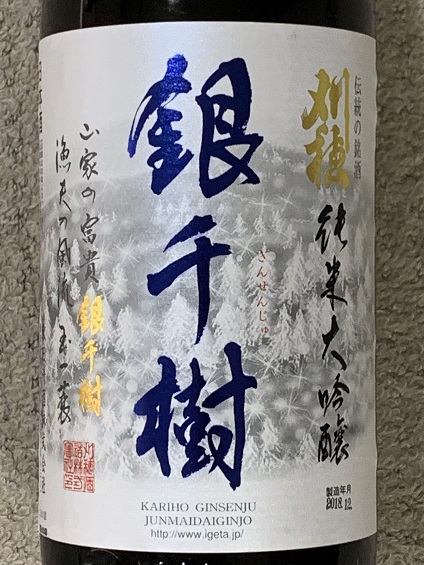 伝統の銘酒
刈穂
純米大吟醸
銀千樹
ぎんせんじゅ
山家の富貴
銀千樹
漁夫の風流
玉一蓑
製造年月
2018.12.
KARIHO GINSENJU
JUNMAIDAIGINJO
http://www.igeta.jp/